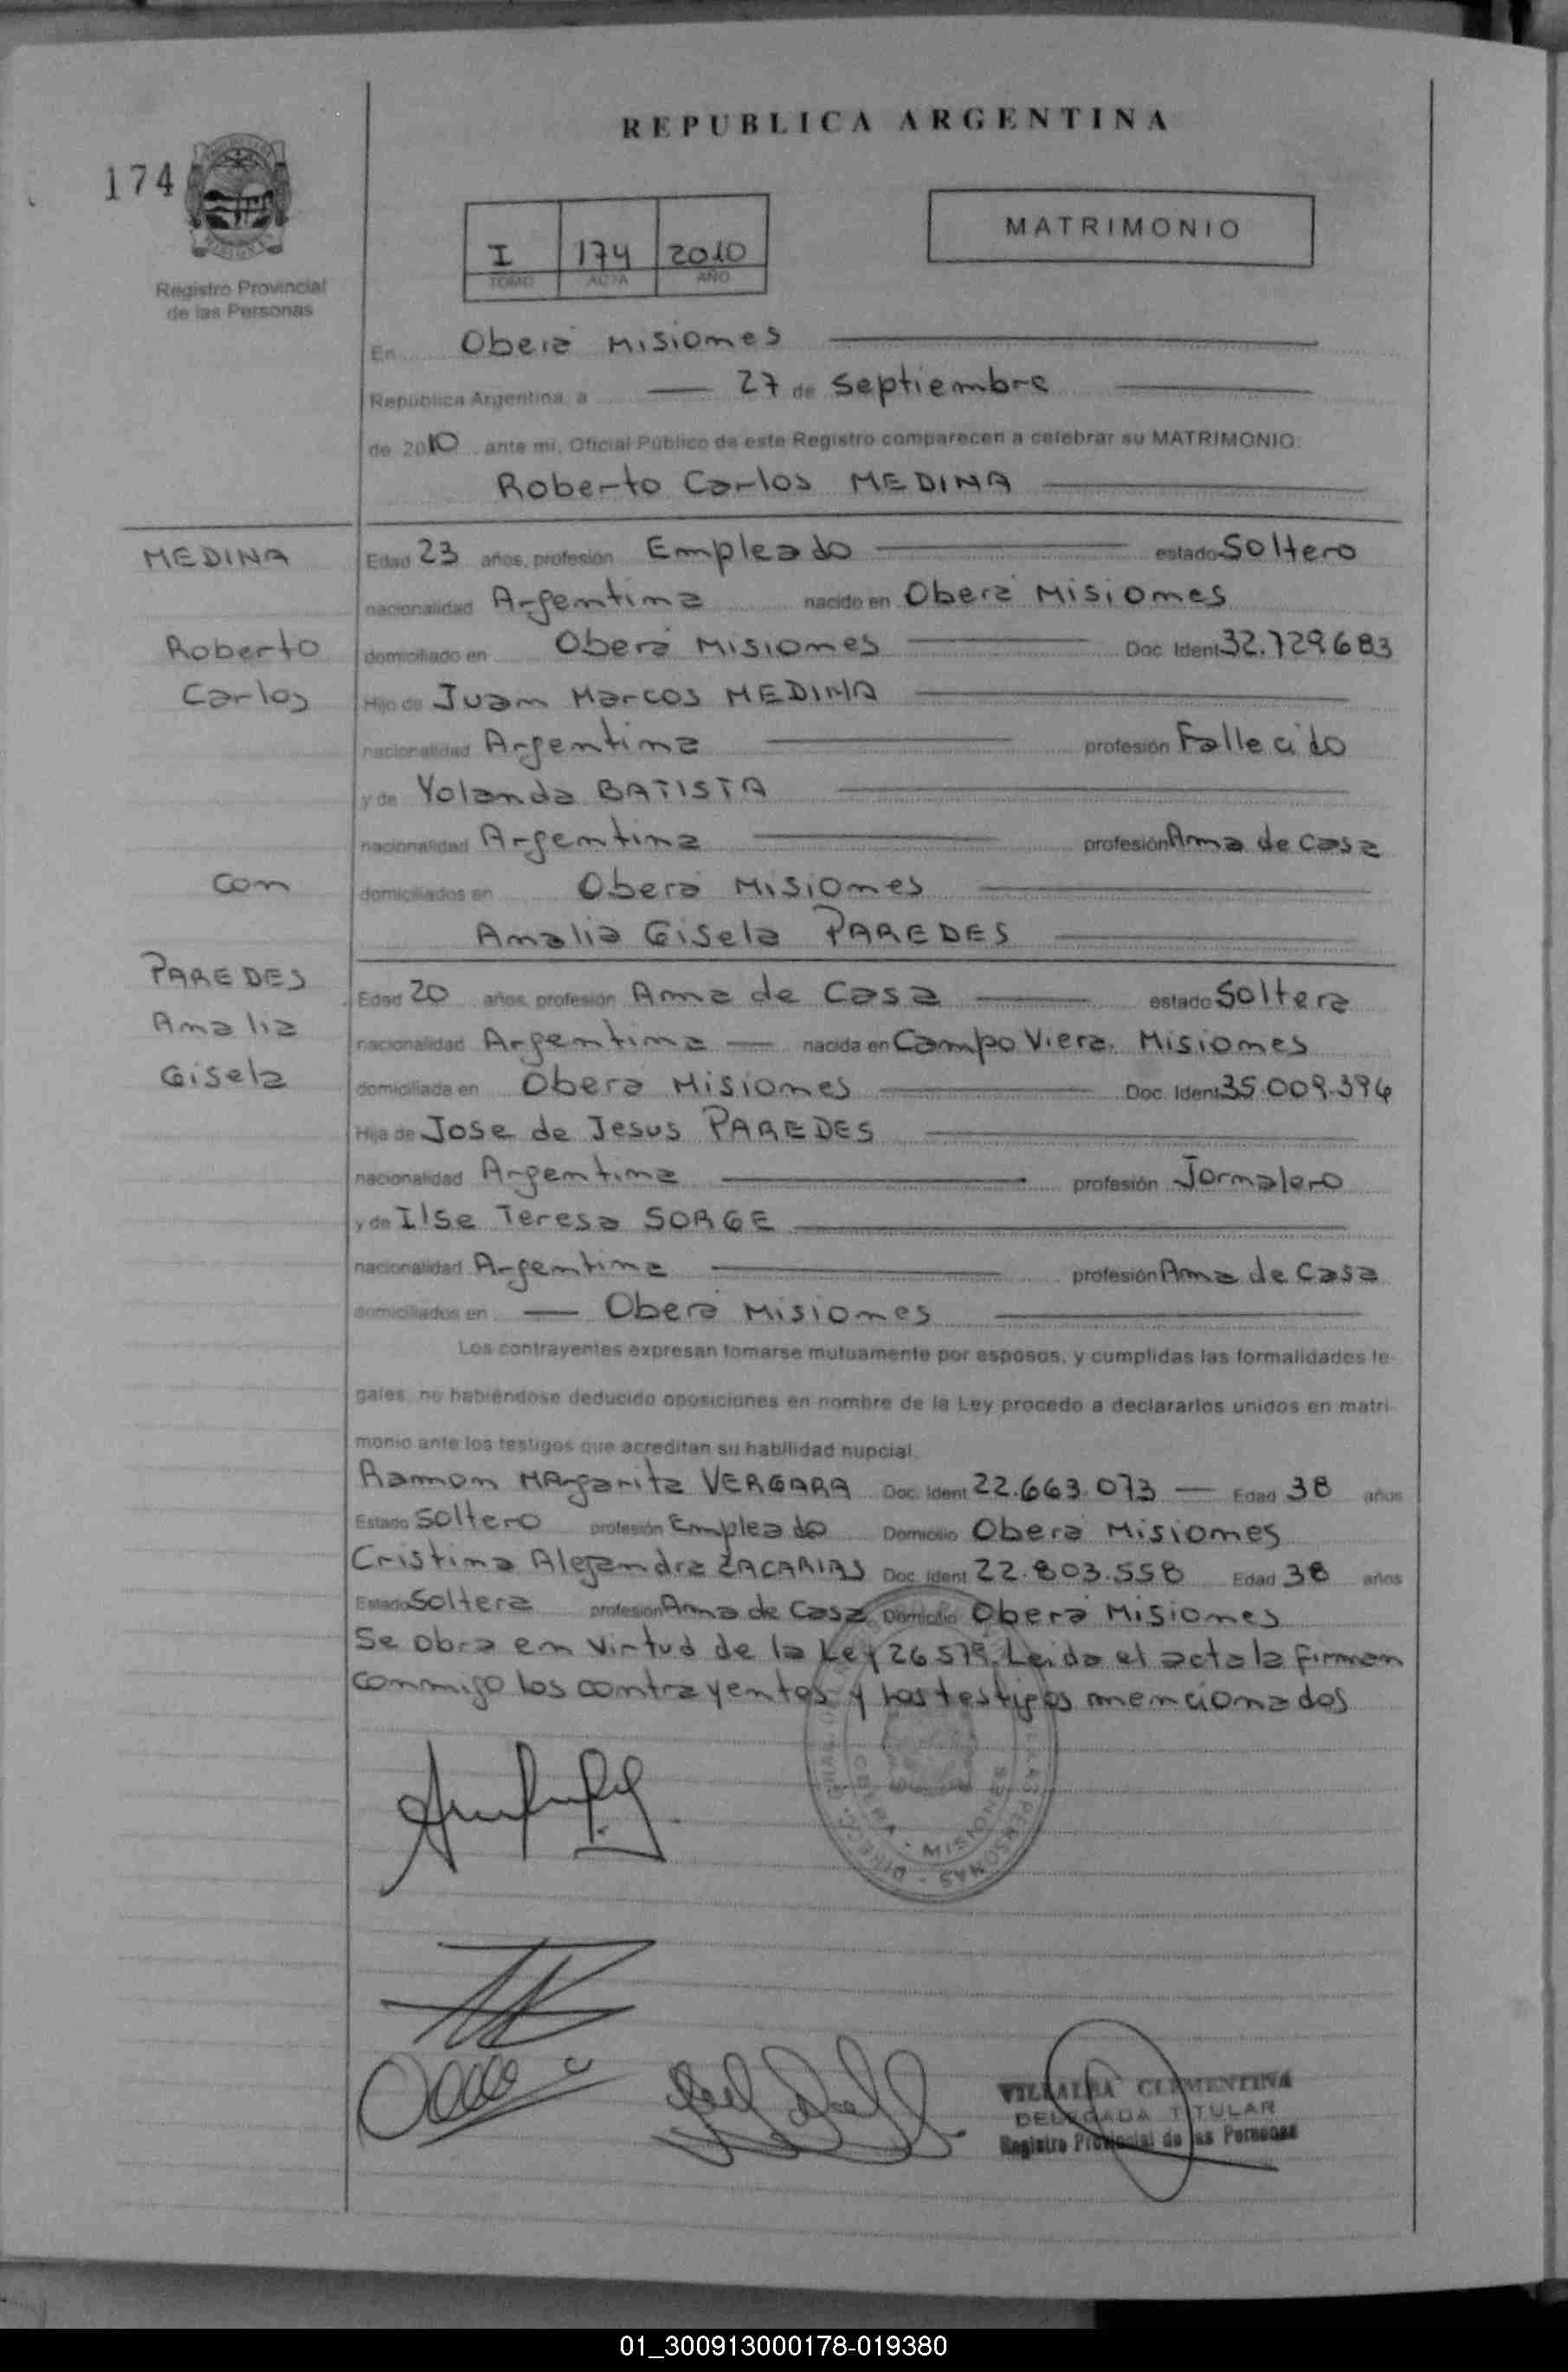 REPUBLICA ARGENTINA
174
I 174 2010
TOMO ACTA AÑO
MATRIMONIO
Registro Provincial
de las Personas
En Oberá Misiones
República Argentina, a 27 de septiembre
de 2010 ante mi, Oficial Público de este Registro comparecen a celebrar su MATRIMONIO:
Roberto Carlos MEDINA
MEDINA
Roberto
Carlos
con
PAREDES
Amalia
Gisela
Edad 23 años, profesión Empleado estado Soltero
nacionalidad Argentina nacido en Oberá Misiones
domiciliado en Oberá Misiones Doc. Ident 32.729.683
Hijo de Juan Marcos MEDINA
nacionalidad Argentina profesión Fallecido
y de Yolanda BATISTA
nacionalidad Argentina profesión Ama de casa
domiciliados en Oberá Misiones
Amalia Gisela PAREDES
Edad 20 años, profesión Ama de Casa estado Soltera
nacionalidad Argentina nacida en Campo Viera. Misiones
domiciliada en Oberá Misiones Doc. Ident 35.009.394
Hija de Jose de Jesus PAREDES
nacionalidad Argentina profesión Jornalero
y de Ilse Teresa SORGE
nacionalidad Argentina profesión Ama de Casa
domiciliados en Oberá Misiones
Los contrayentes expresan tomarse mutuamente por esposos, y cumplidas las formalidades le-
gales, no habiéndose deducido oposiciones en nombre de la Ley procedo a declararlos unidos en matri-
monio ante los testigos que acreditan su habilidad nupcial.
Ramon MArgarita VERGARA Doc. Ident 22.663.073 Edad 38 años
Estado Soltero profesión Empleado Domicilio Oberá Misiones
Cristina Alejandra ZACARIAS Doc. Ident 22.803.558 Edad 38 años
Estado Soltera profesión Ama de Casa Domicilio Oberá Misiones
Se obra en virtud de la Ley 26.579. Leida el acta la firman
conmigo los contrayentes y los testigos mencionados
OBERA - MISIONES
VILLALBA CLEMENTINA
DELEGADA TITULAR
Registro Provincial de las Personas
01_300913000178-019380